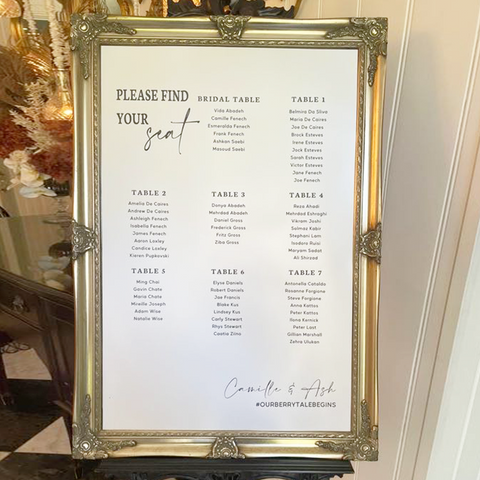 PLEASE FIND
YOUR
seat
BRIDAL TABLE
Vida Abadeh
Camille Fenech
Esmeralda Fenech
Frank Fenech
Ashkan Saebi
Masoud Saebi
TABLE 1
Belmiro Da Silva
Maria De Caires
Joe De Caires
Brock Esteves
Irene Esteves
Jock Esteves
Sarah Esteves
Victor Esteves
Jane Fenech
Joe Fenech
TABLE 2
Amelia De Caires
Andrew De Caires
Ashleigh Fenech
Isabella Fenech
James Fenech
Aaron Loxley
Candice Loxley
Kieren Pupkovski
TABLE 3
Donya Abadeh
Mehrdad Abadeh
Daniel Gross
Frederick Gross
Fritz Gross
Ziba Gross
TABLE 4
Reza Ahadi
Mehrdad Eshraghi
Vikram Joshi
Solmaz Kabir
Stephani Lam
Isadora Ruisi
Maryam Sadat
Ali Shirzad
TABLE 5
Ming Chai
Gavin Chate
Maria Chate
Mirelle Joseph
Adam Wise
Natalie Wise
TABLE 6
Elyse Daniels
Robert Daniels
Joe Francis
Blake Kus
Lindsey Kus
Carly Stewart
Rhys Stewart
Caetia Zirio
TABLE 7
Antonella Cataldo
Roxanne Forgione
Steve Forgione
Anna Kattos
Peter Kattos
Ilona Kernick
Peter Last
Gillian Marshall
Zehra Ulukan
Camille & Ash
#OURBERRYTALEBEGINS